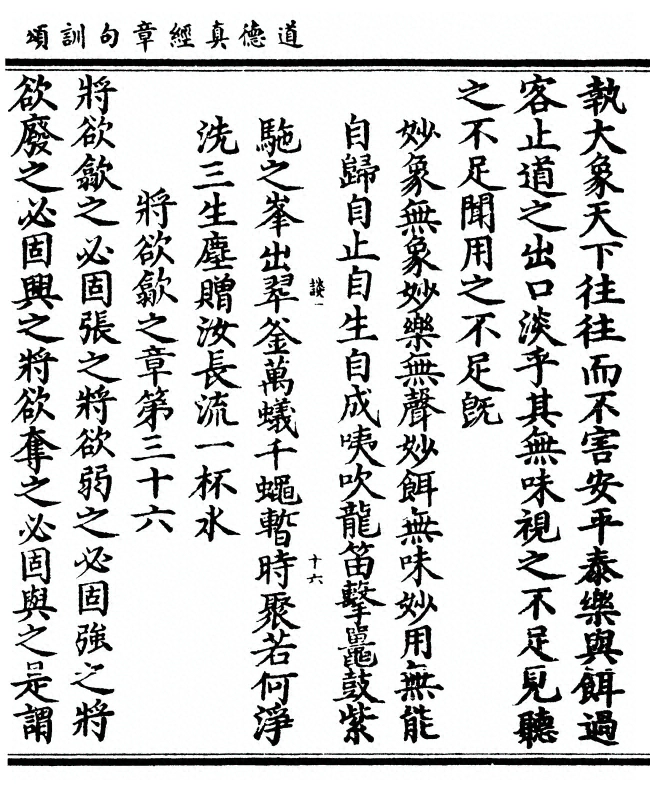 道德真經章句訓頌
執大象天下往往而不害安平泰樂與餌過
客止道之出口淡乎其無味視之不足見聽
之不足聞用之不足旣
妙象無象妙樂無聲妙餌無味妙用無能
自歸自止自生自成咦吹龍笛擊鼉鼓紫
談一
十六
駞之峯出翠釜萬蟻千蠅暫時聚若何淨
洗三生塵贈汝長流一杯水
將欲歙之章第三十六
將欲歙之必固張之將欲弱之必固強之將
欲廢之必固興之將欲奪之必固與之是謂